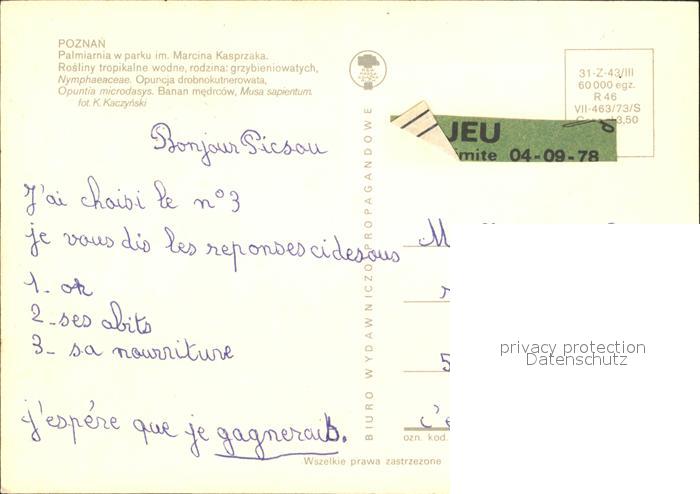 POZNAŃ
Palmiarnia w parku im. Marcina Kasprzaka.
Rośliny tropikalne wodne, rodzina: grzybieniowatych,
Nymphaeaceae. Opuncja drobnokutnerowata,
Opuntia microdasys. Banan mędrców, Musa sapientum.
fot. K. Kaczyński
31-Z-43/III
60 000 egz.
R 46
VII-463/73/S
3,50
JEU
imite 04-09-78
Bonjour Picsou
J'ai choisi le n° 3
je vous dis les reponses cidesous
1- ok
2-ses abits
3- sa nourriture
j'espére que je gagnerais.
BIURO WYDAWNICZO PROPAGANDOWE
M
5
c'e
ozn. kod.
Wszelkie prawa zastrzeżone
privacy protection
Datenschutz